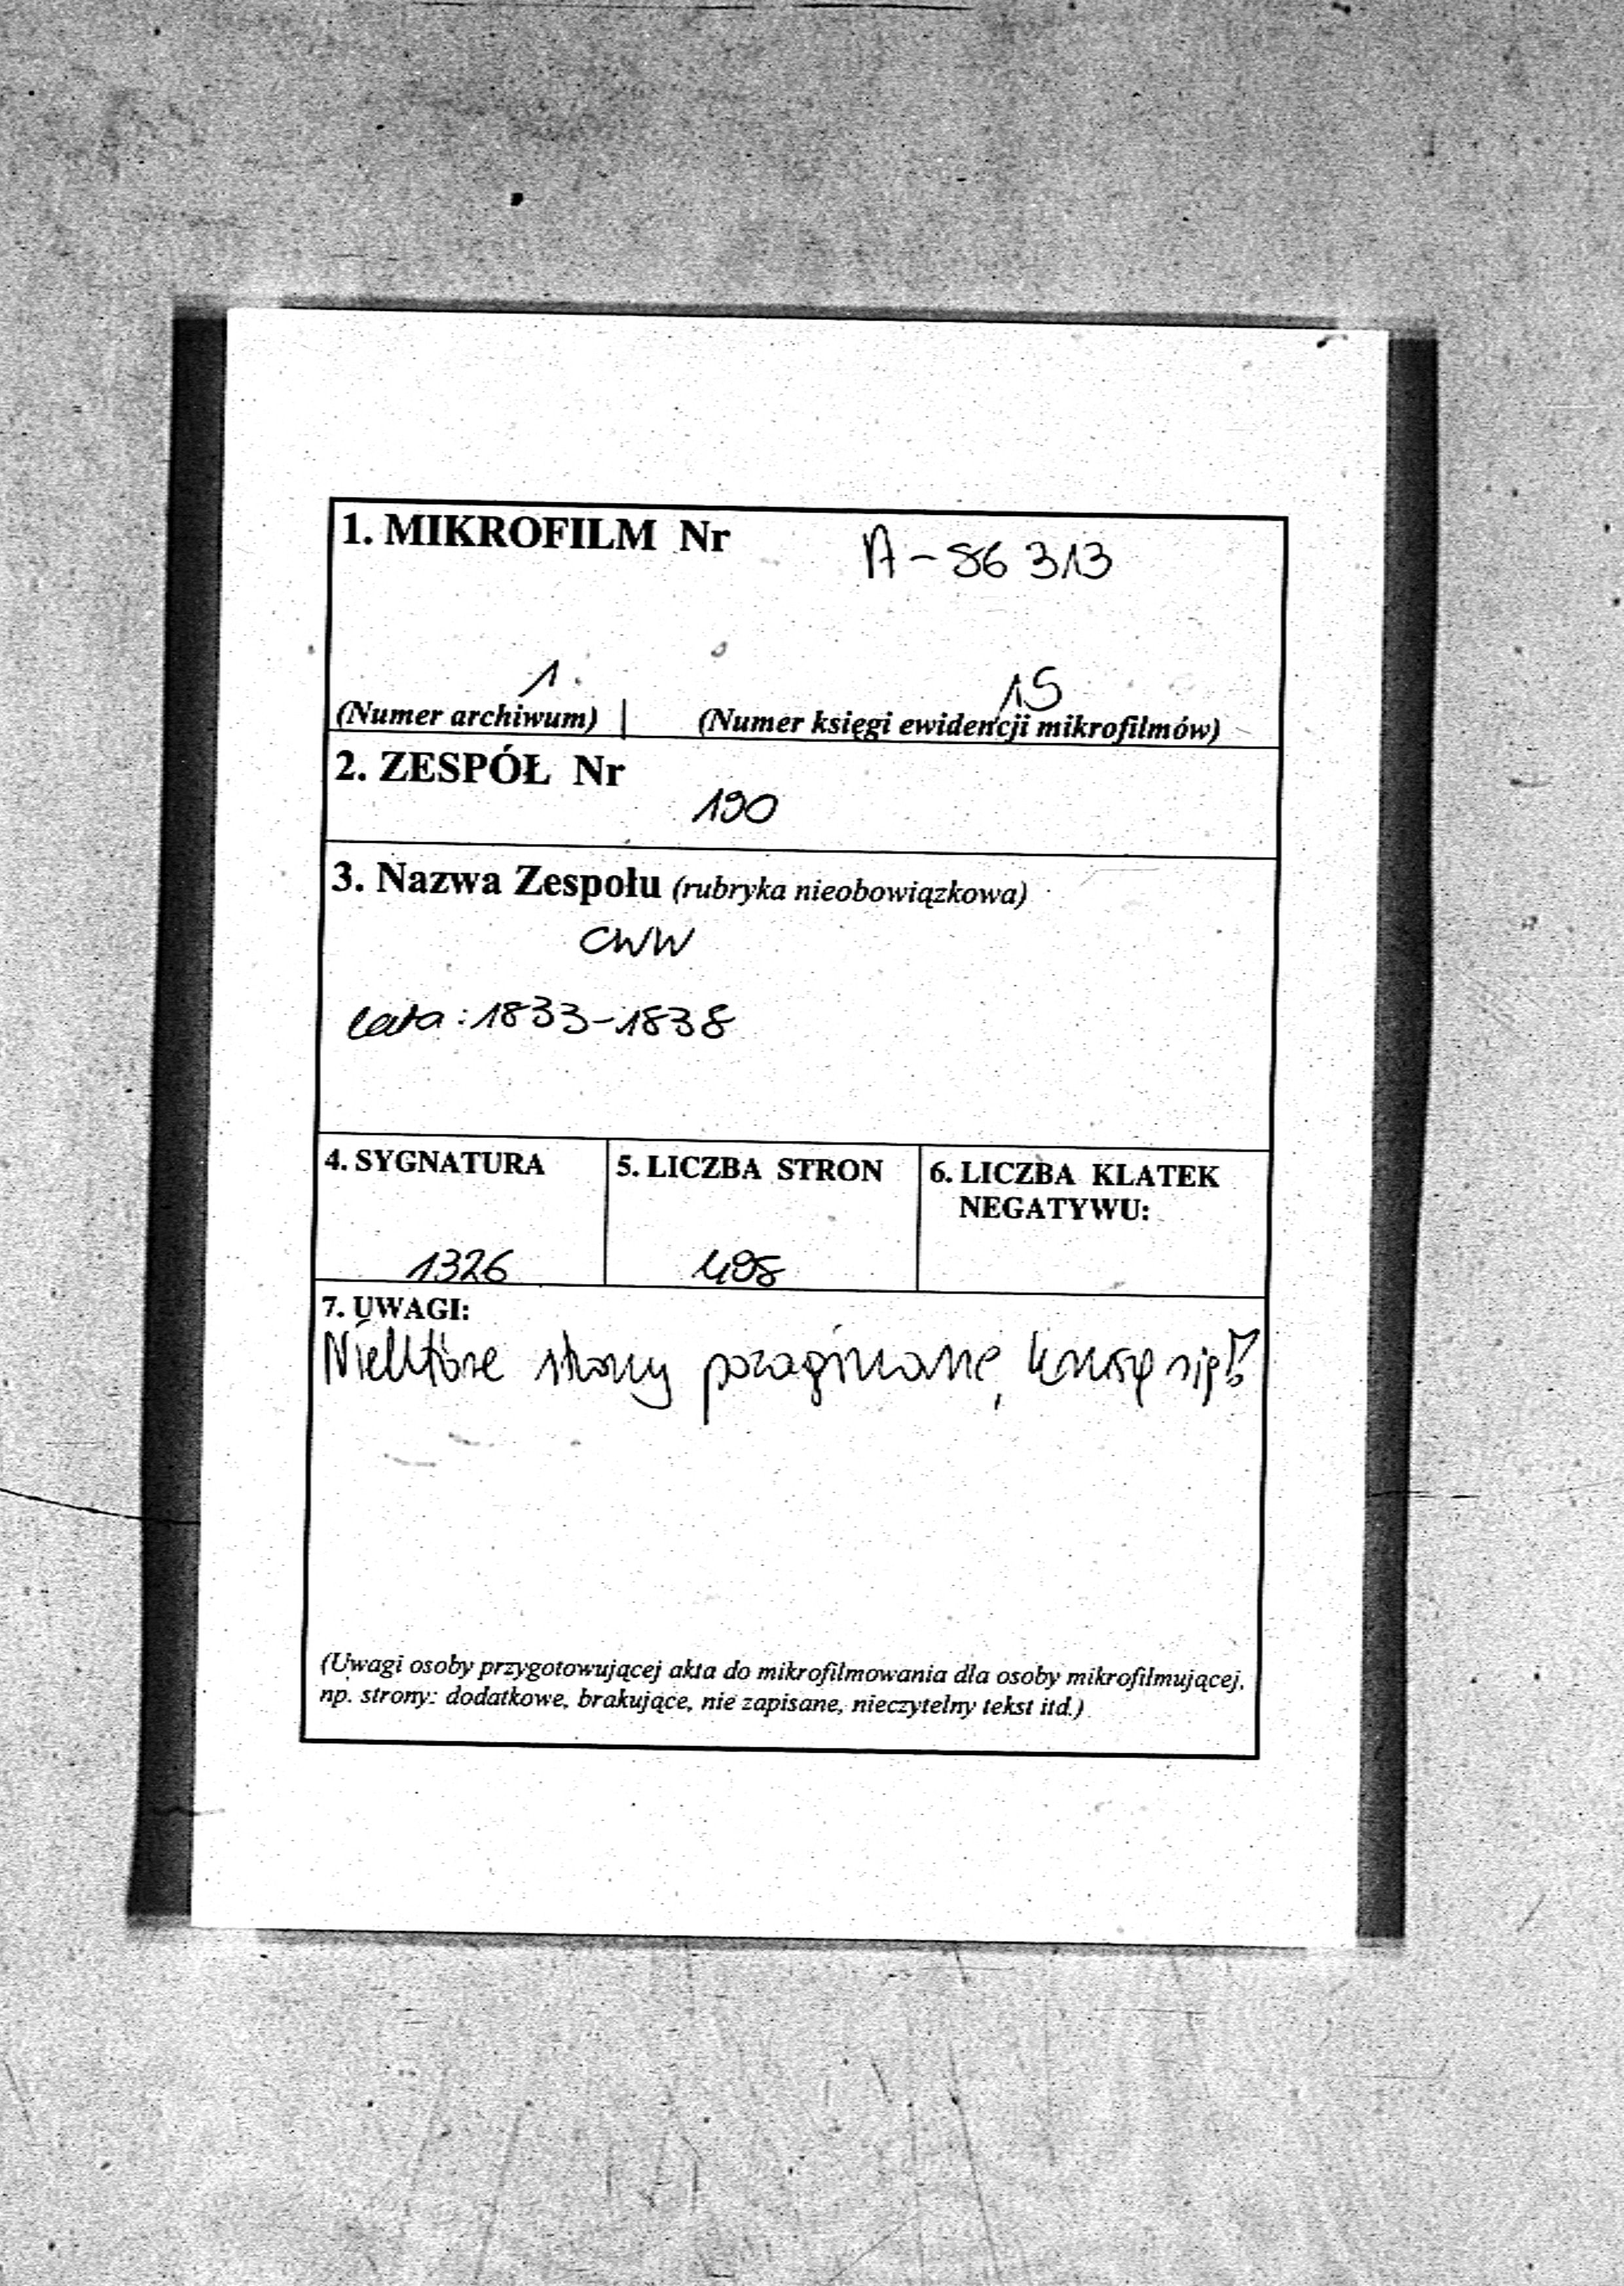 1. MIKROFILM Nr A-86 313
1. 15
(Numer archiwum) | (Numer księgi ewidencji mikrofilmów)
2. ZESPÓŁ Nr
190
3. Nazwa Zespołu (rubryka nieobowiązkowa)
CWW
lata: 1833-1838
4. SYGNATURA 5. LICZBA STRON 6. LICZBA KLATEK
NEGATYWU:
1326 498
7. UWAGI:
Niektóre strony pozaginane, kruszą się!
(Uwagi osoby przygotowującej akta do mikrofilmowania dla osoby mikrofilmującej,
np. strony: dodatkowe, brakujące, nie zapisane, nieczytelny tekst itd.)